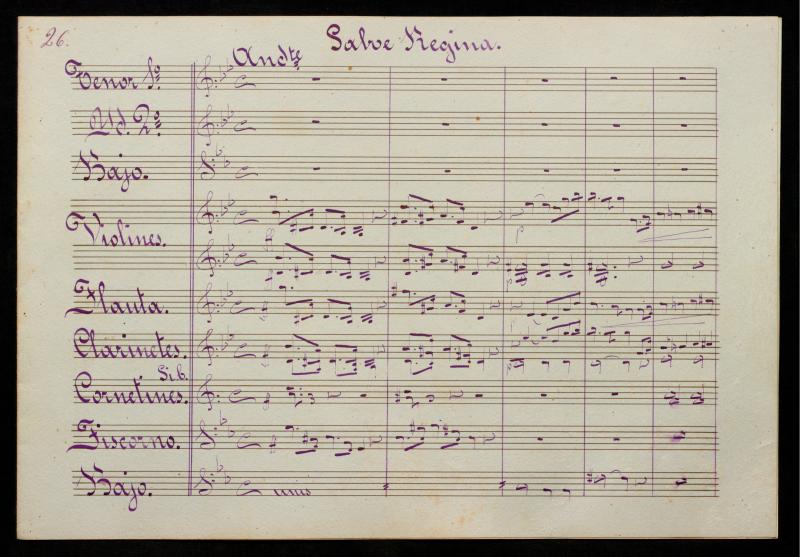 26.
Salve Regina.
Andte
Tenor 1º.
Yd. 2º.
Bajo.
Violines.
Flauta.
Clarinetes.
Sib.
Cornetines.
Fiscorno.
Bajo.
unis